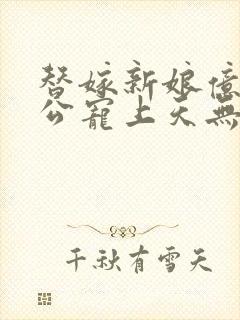 替嫁新娘億
公寵上天無
千秋有雪天